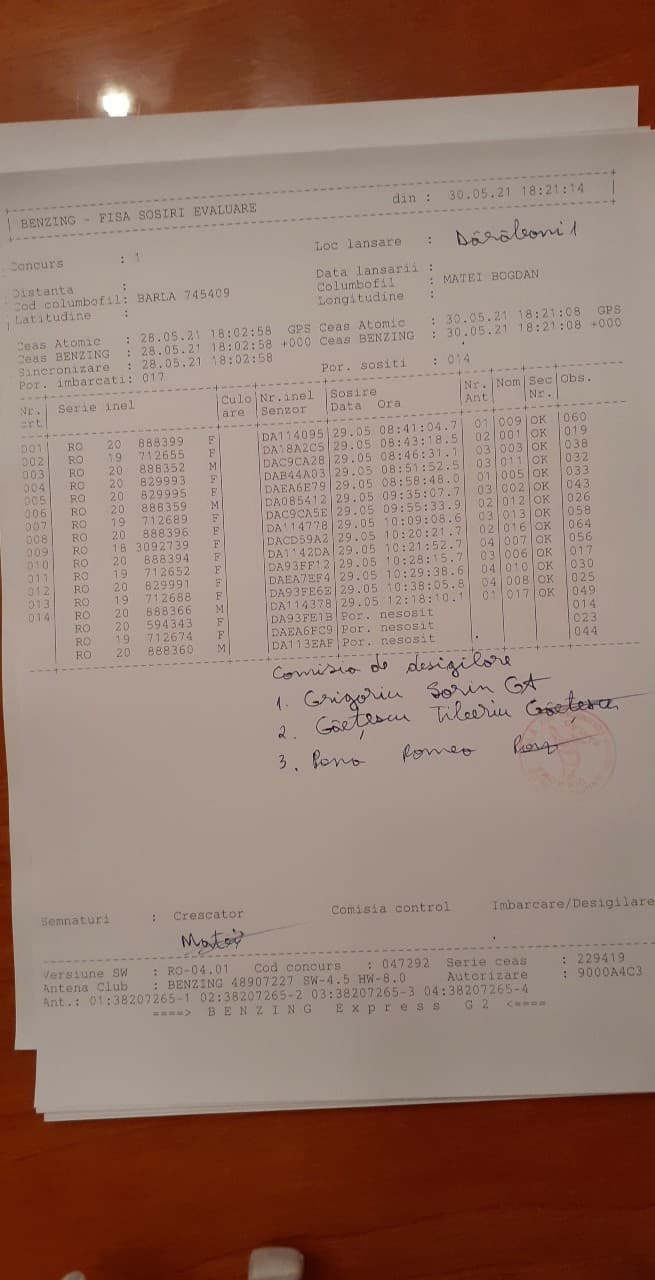 BENZING - FISA SOSIRI EVALUARE din : 30.05.21 18:21:14
Concurs : 1 Loc lansare : Dărăbani 1
Distanta : Data lansarii :
Cod columbofil: BARLA 745409 Columbofil : MATEI BOGDAN
Latitudine : Longitudine :
Ceas Atomic : 28.05.21 18:02:58 GPS Ceas Atomic : 30.05.21 18:21:08 GPS
Ceas BENZING : 28.05.21 18:02:58 +000 Ceas BENZING : 30.05.21 18:21:08 +000
Sincronizare : 28.05.21 18:02:58
Por. imbarcati: 017 Por. sositi : 014
Nr. Serie inel Culo Nr.inel Sosire Nr. Nom Sec Obs.
crt are Senzor Data Ora Ant Nr.
001 RO 20 888399 F DA114095 29.05 08:41:04.7 01 009 OK 060
002 RO 19 712655 F DA18A2C5 29.05 08:43:18.5 02 001 OK 019
003 RO 20 888352 M DAC9CA28 29.05 08:46:31.1 03 003 OK 038
004 RO 20 829993 F DAB44A03 29.05 08:51:52.5 03 011 OK 032
005 RO 20 829995 F DAEA6E79 29.05 08:58:48.0 01 005 OK 033
006 RO 20 888359 M DA085412 29.05 09:35:07.7 03 002 OK 043
007 RO 19 712689 F DAC9CA5E 29.05 09:55:33.9 02 012 OK 026
008 RO 20 888396 F DA114778 29.05 10:09:08.6 03 013 OK 058
009 RO 18 3092739 F DACD59A2 29.05 10:20:21.7 02 016 OK 064
010 RO 20 888394 F DA1142DA 29.05 10:21:52.7 04 007 OK 056
011 RO 19 712652 F DA93FF12 29.05 10:28:15.7 03 006 OK 017
012 RO 20 829991 F DAEA7EF4 29.05 10:29:38.6 04 010 OK 030
013 RO 19 712688 F DA93FE6E 29.05 10:38:05.8 04 008 OK 025
014 RO 20 888366 M DA114378 29.05 12:18:10.1 01 017 OK 049
RO 20 594343 F DA93FE1B Por. nesosit 014
RO 19 712674 F DAEA6FC9 Por. nesosit 023
RO 20 888360 M DA113EAF Por. nesosit 044
Comisia de desigilare
1. Grigoriu Sorin
2. Găețescu Tiberiu
3. Pana Romeo
Semnaturi : Crescator Comisia control Imbarcare/Desigilare
Matei
Versiune SW : RO-04.01 Cod concurs : 047292 Serie ceas : 229419
Antena Club : BENZING 48907227 SW-4.5 HW-8.0 Autorizare : 9000A4C3
Ant.: 01:38207265-1 02:38207265-2 03:38207265-3 04:38207265-4
====> B E N Z I N G E x p r e s s G 2 <====